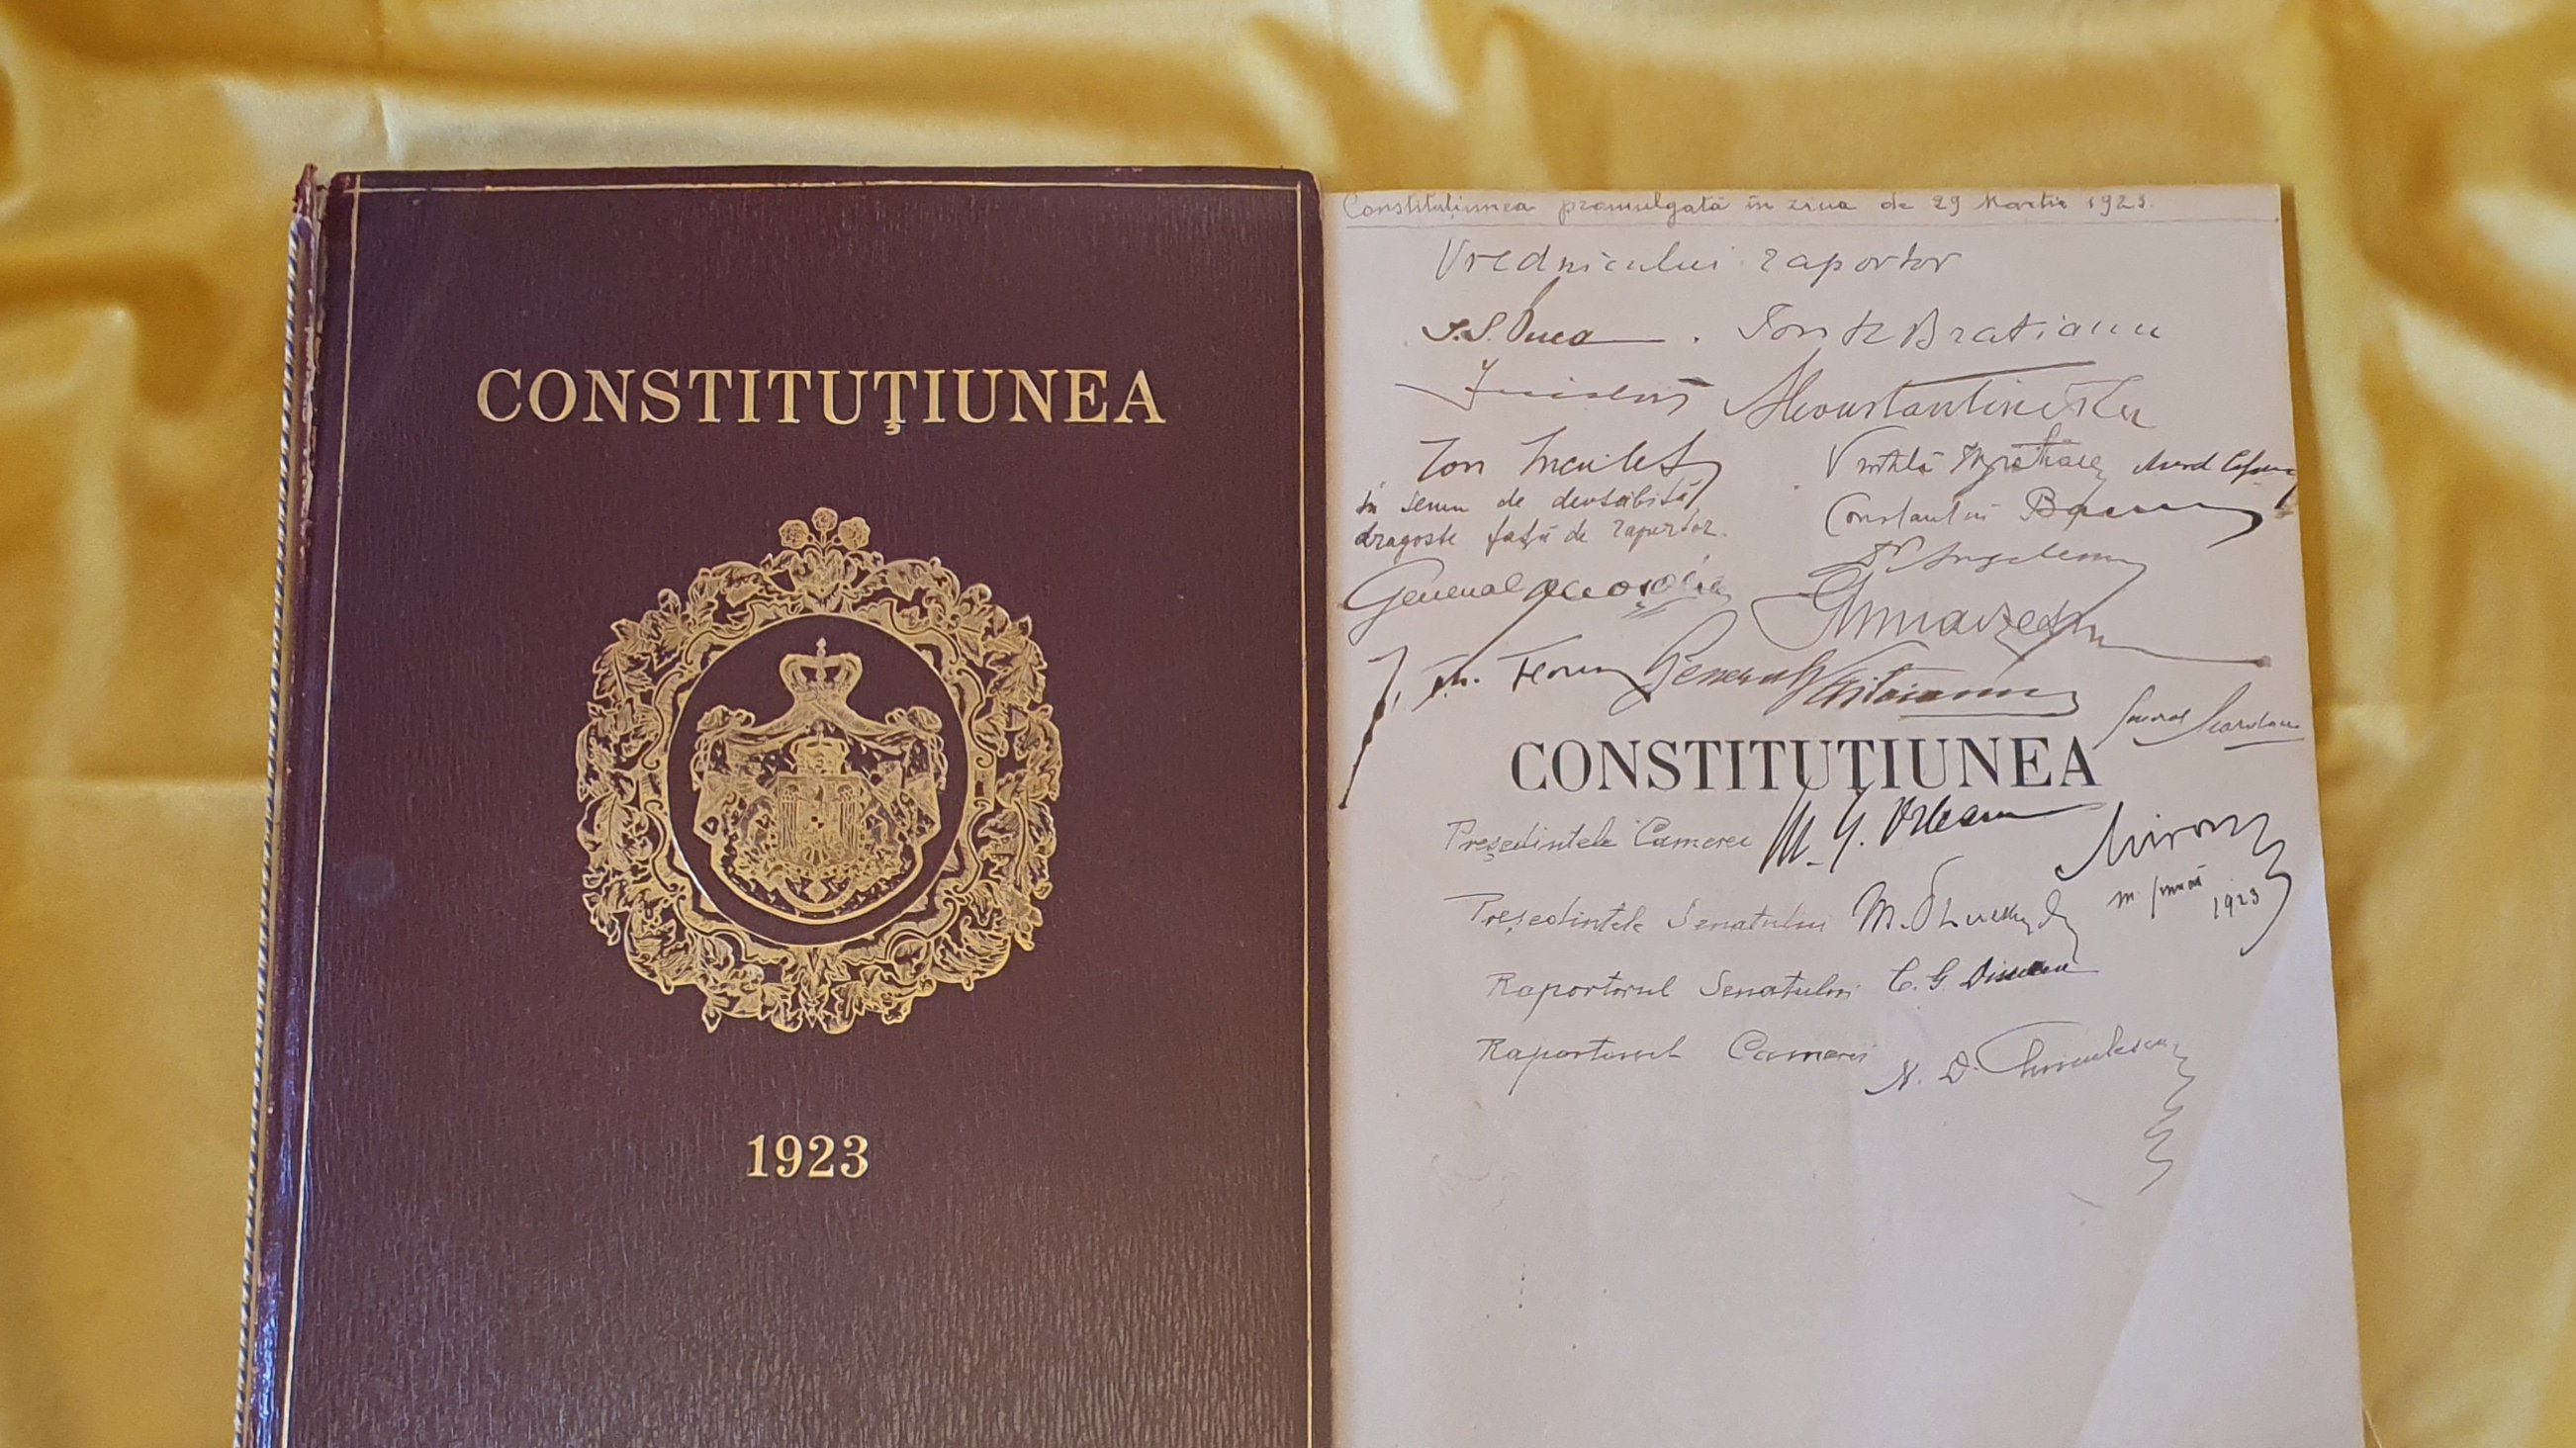 CONSTITUŢIUNEA
1923
Constituțiunea promulgată în ziua de 29 Martie 1923.
Vrednicului raportor
I. G. Duca
Ion I. C. Bratianu
Al Constantinescu
Ion Inculeț
Vintilă
în semn de deosăbită
Constantin
dragoste față de raportor.
Dr Angelescu
General
Gh Mârzescu
General Văitoianu
General Scarlat
CONSTITUŢIUNEA
Președintele Camerei M. G. Orleanu
Miron
1923
Președintele Senatului M. Pherekyde
Raportorul Senatului C. G. Dissescu
Raportorul Camerei N. D. Chirculescu